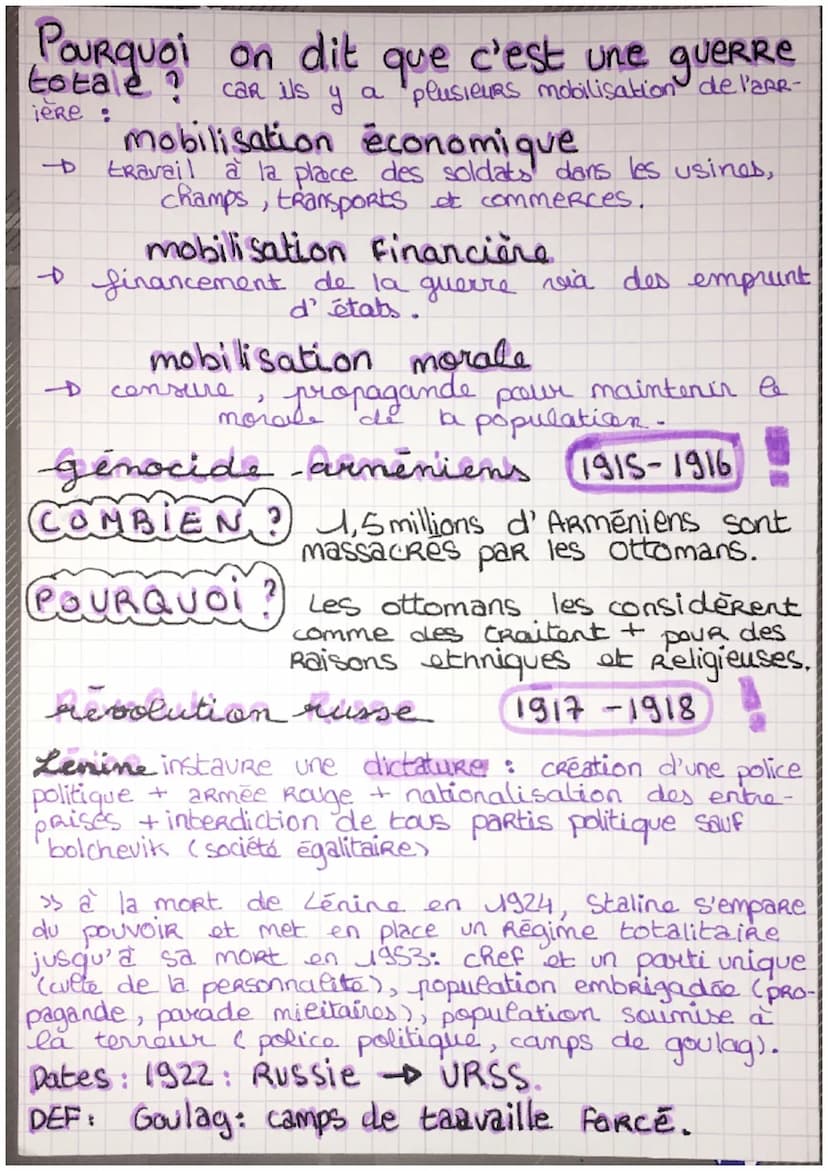 Pourquoi on dit que c'est une guerre
totale ? car ils y a plusieurs mobilisation de l'arr-
ière :
mobilisation économique
→ travail à la place des soldats dans les usines,
champs, transports et commerces.
mobilisation financière
→ financement de la guerre via des emprunt
d'états.
mobilisation morale
→ censure, propagande pour maintenir le
morale de la population.
génocide - arméniens 1915-1916 !
COMBIEN ? 1,5 millions d'Arméniens sont
massacrés par les ottomans.
POURQUOI ? Les ottomans les considèrent
comme des traitent + pour des
raisons ethniques et religieuses.
révolution russe 1917-1918 !
Lénine instaure une dictature : création d'une police
politique + armée rouge + nationalisation des entre-
prises + interdiction de tous partis politique sauf
bolchevik (société égalitaire)
>> à la mort de Lénine en 1924, Staline s'empare
du pouvoir et met en place un régime totalitaire
jusqu'à sa mort en 1953: chef et un parti unique
(culte de la personnalité), population embrigadée (pro-
pagande, parade militaires), population soumise à
la terreur (police politique, camps de goulag).
Dates : 1922 : Russie → URSS.
DEF : Goulag : camps de taavaille forcé.